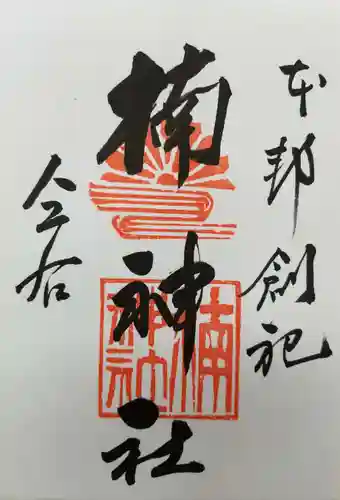 本邦創祀
楠神社
楠神社
倉谷